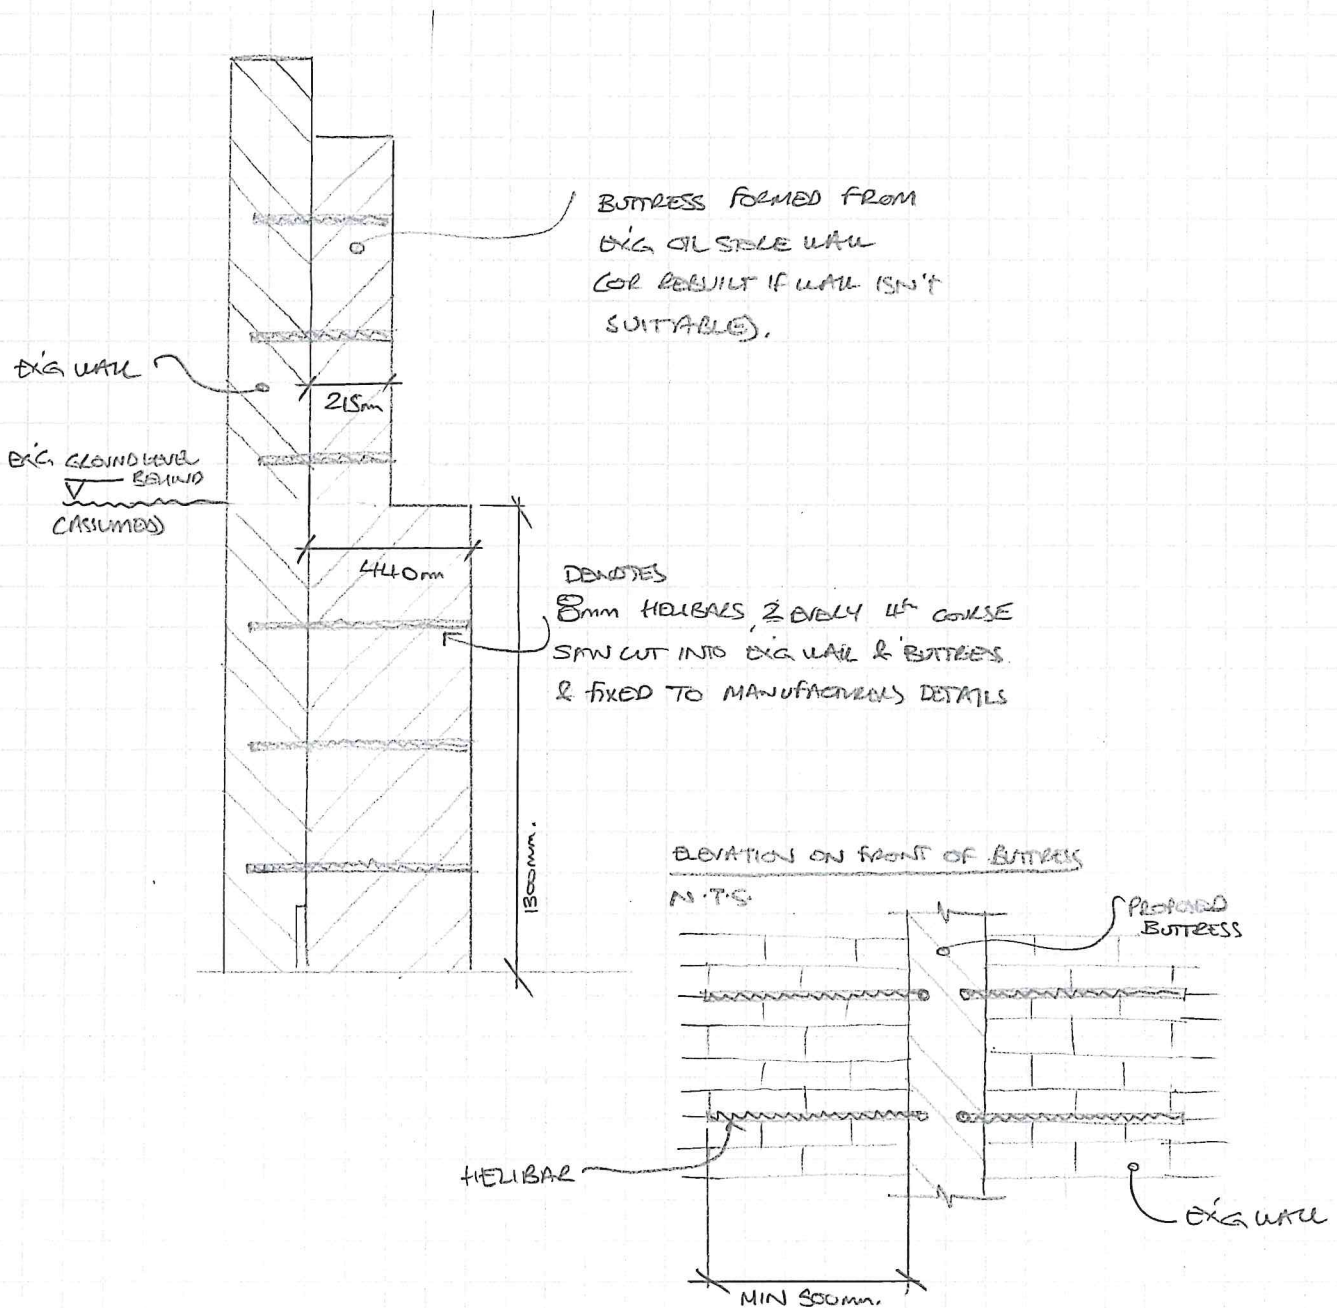 BUTTRESS FORMED FROM
EX'G OIL STORE WALL
(OR REBUILT IF WALL ISN'T
SUITABLE).
EX'G WALL
215mm
EX'G GROUND LEVEL
BEHIND
(ASSUMED)
440mm
DENOTES
8mm HELIBARS, 2 EVERY 4th COURSE
SAW CUT INTO EX'G WALL & BUTTRESS
& FIXED TO MANUFACTURERS DETAILS
1300mm.
ELEVATION ON FRONT OF BUTTRESS
N.T.S.
PROPOSED
BUTTRESS
HELIBAR
EX'G WALL
MIN 500mm.